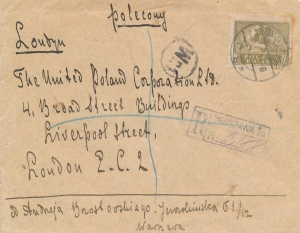 polecony
Londyn
The United Poland Corporation Ltd.
4, Broad Street Buildings
Liverpool Street,
London E.C. 2
R WARSZAWA
Od Andrzeja Brostowskiego. Jerozolimska
Warszawa